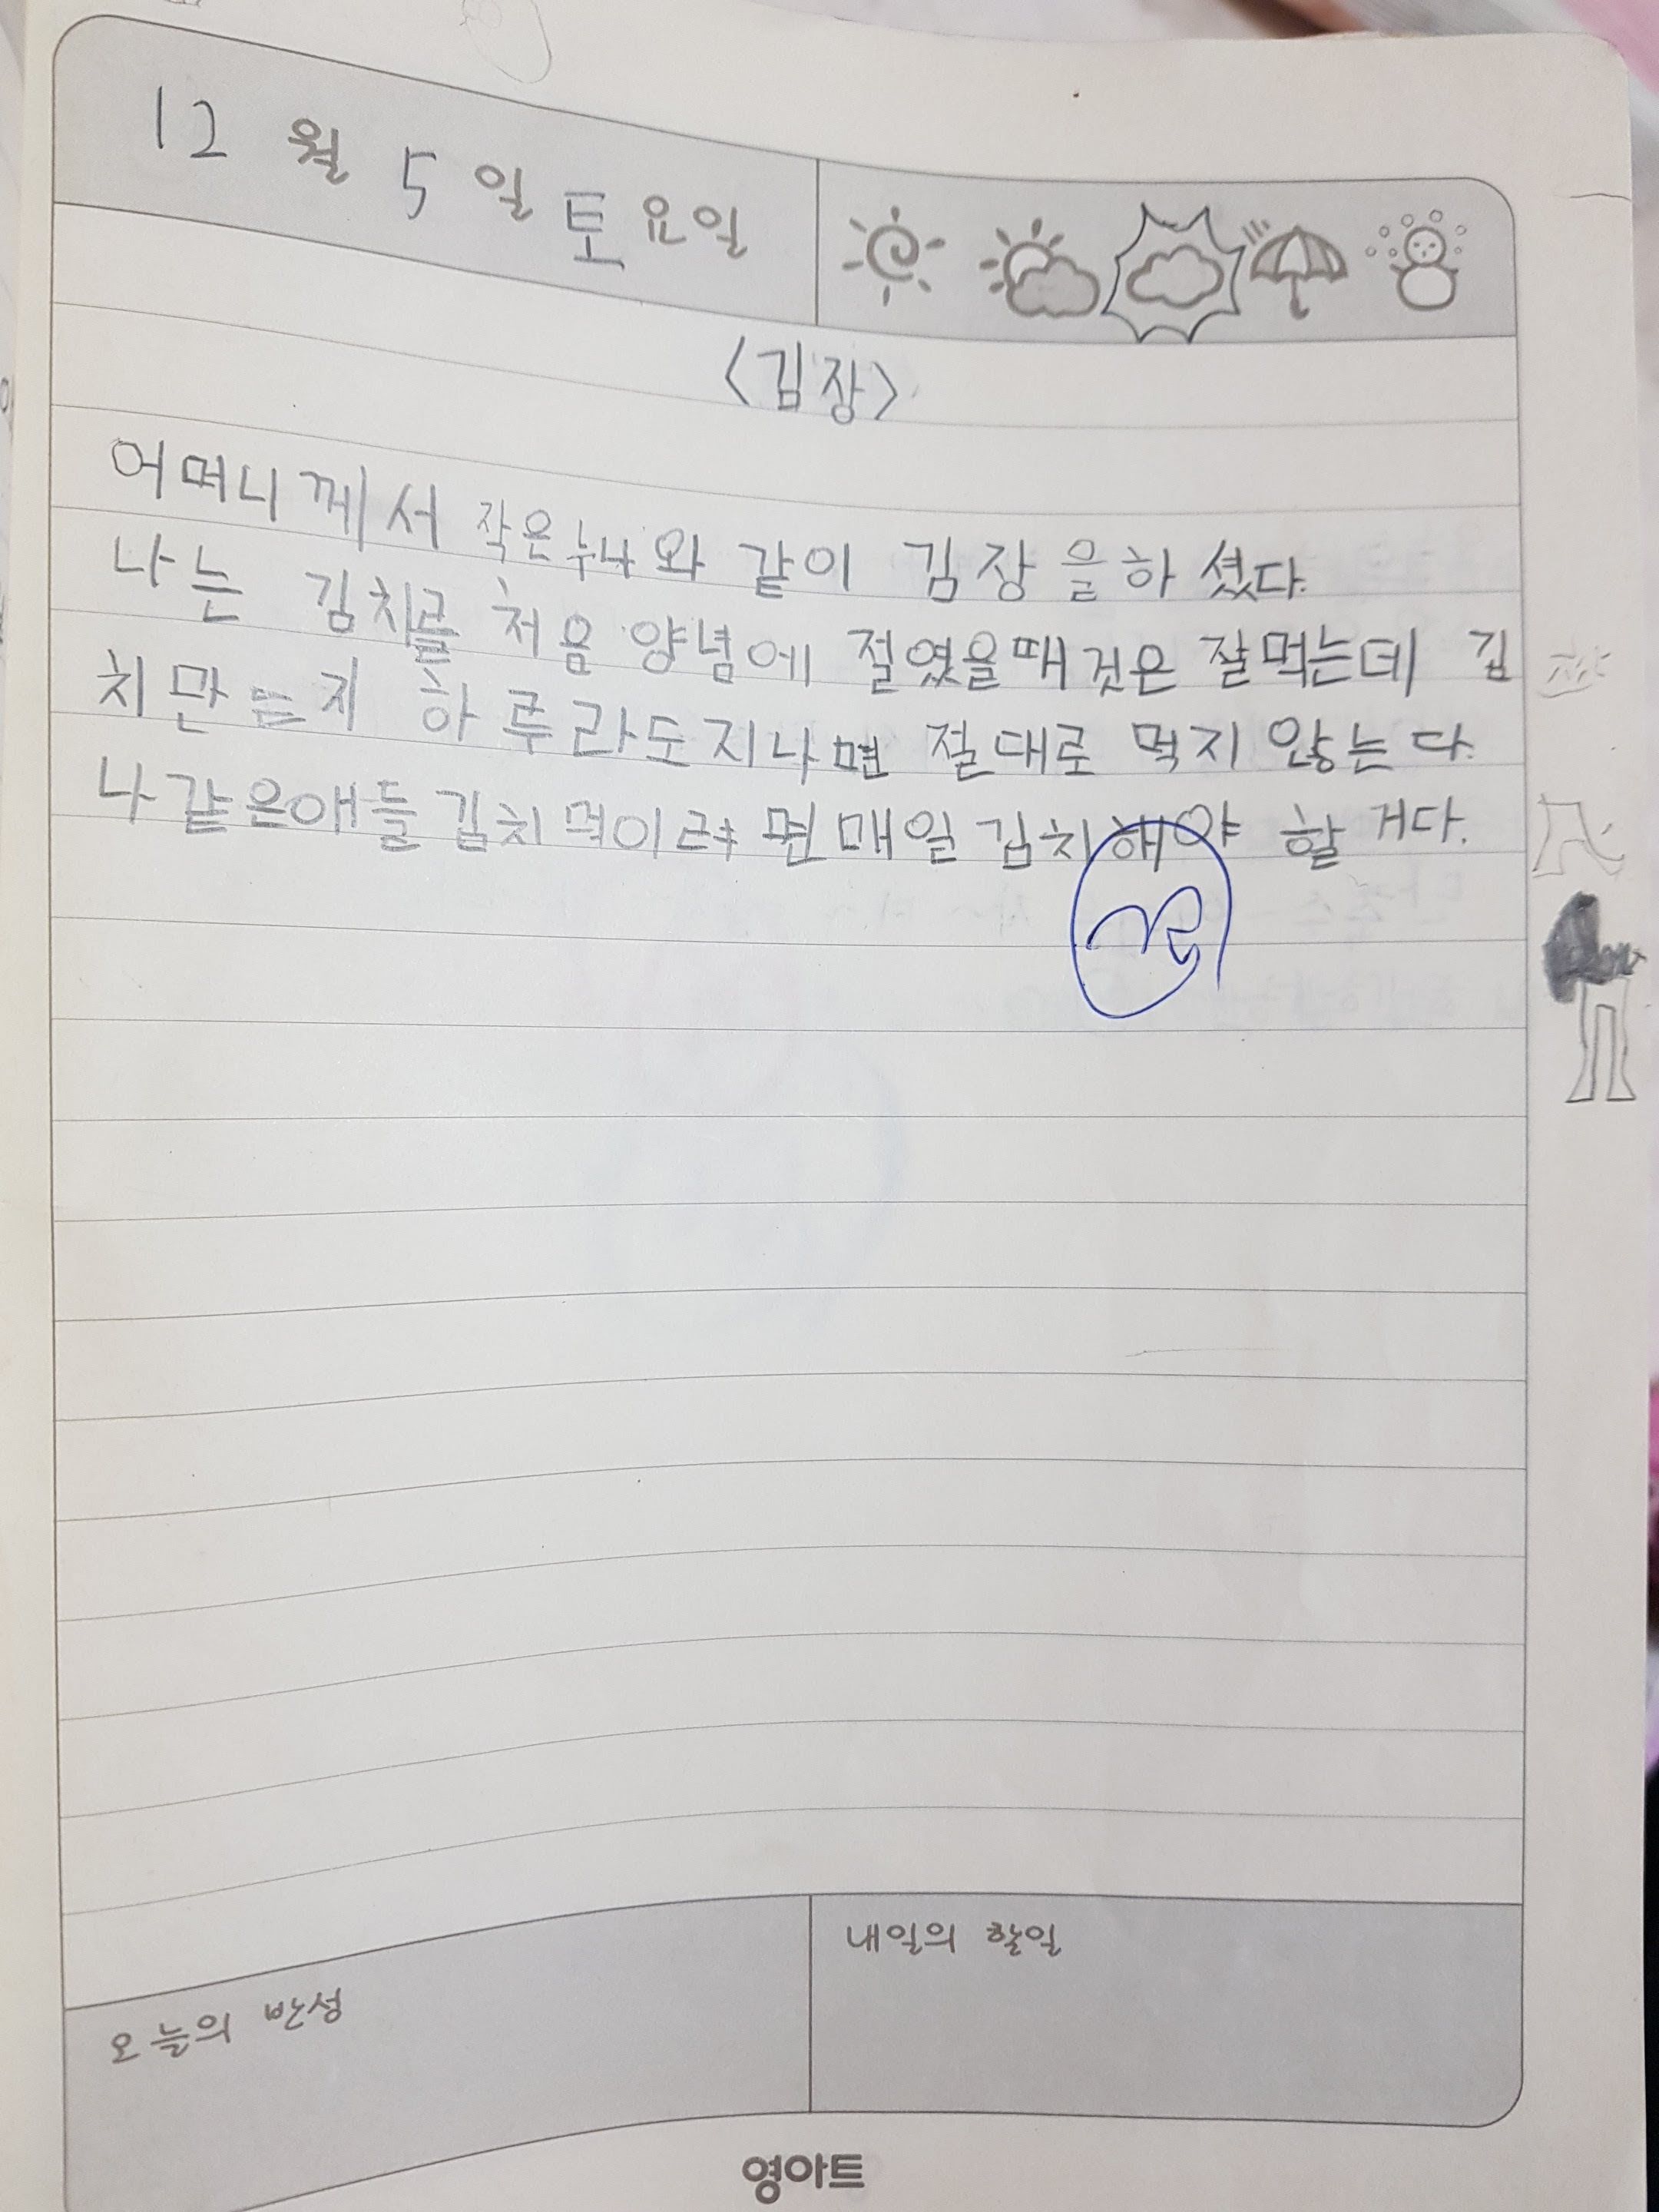 12월 5일 토요일
<김장>
어머니께서 작은누나와 같이 김장을하셨다.
나는 김치를 처음 양념에 절였을때 것은 잘먹는데 김
치만든지 하루라도지나면 절대로 먹지 않는다.
나같은애들 김치먹이려면 매일 김치해야 할거다.
오늘의 반성
내일의 할일
영아트